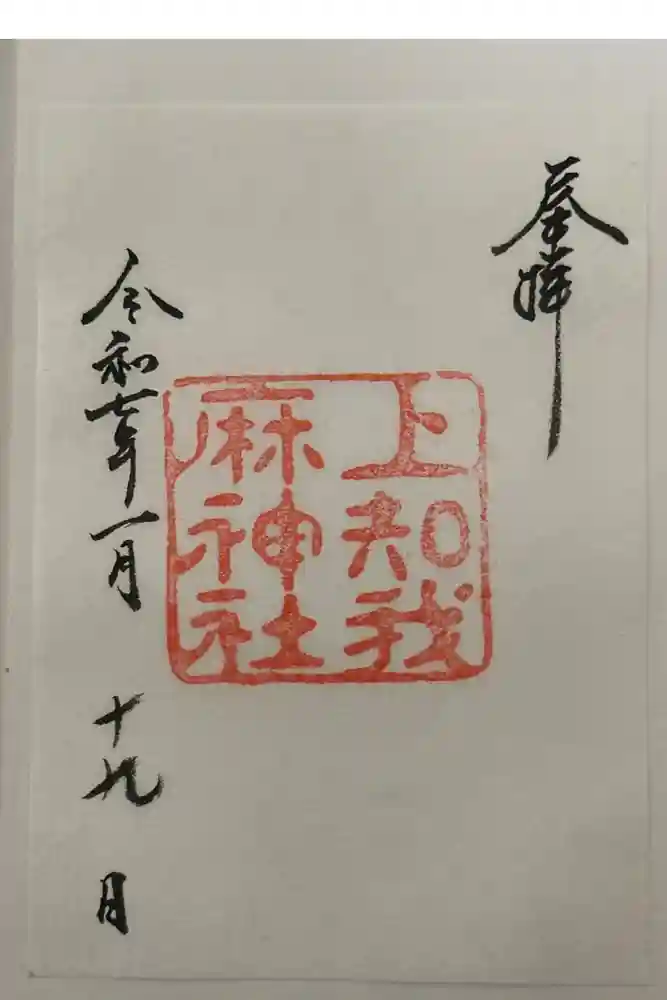 奉拝
上知我
麻神社
令和七年一月十九日